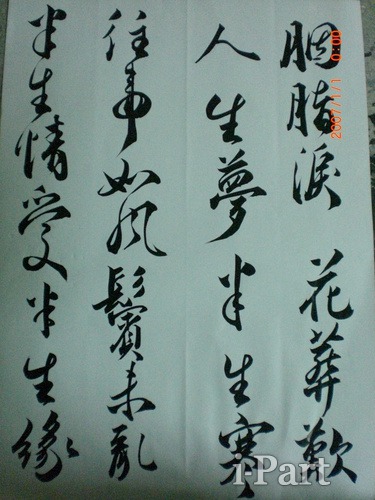 胭脂淚 花葬歎
人生夢半生寒
往事如風鬢未亂
半生情愛半生緣
2007/1/1 0:00
i-Part